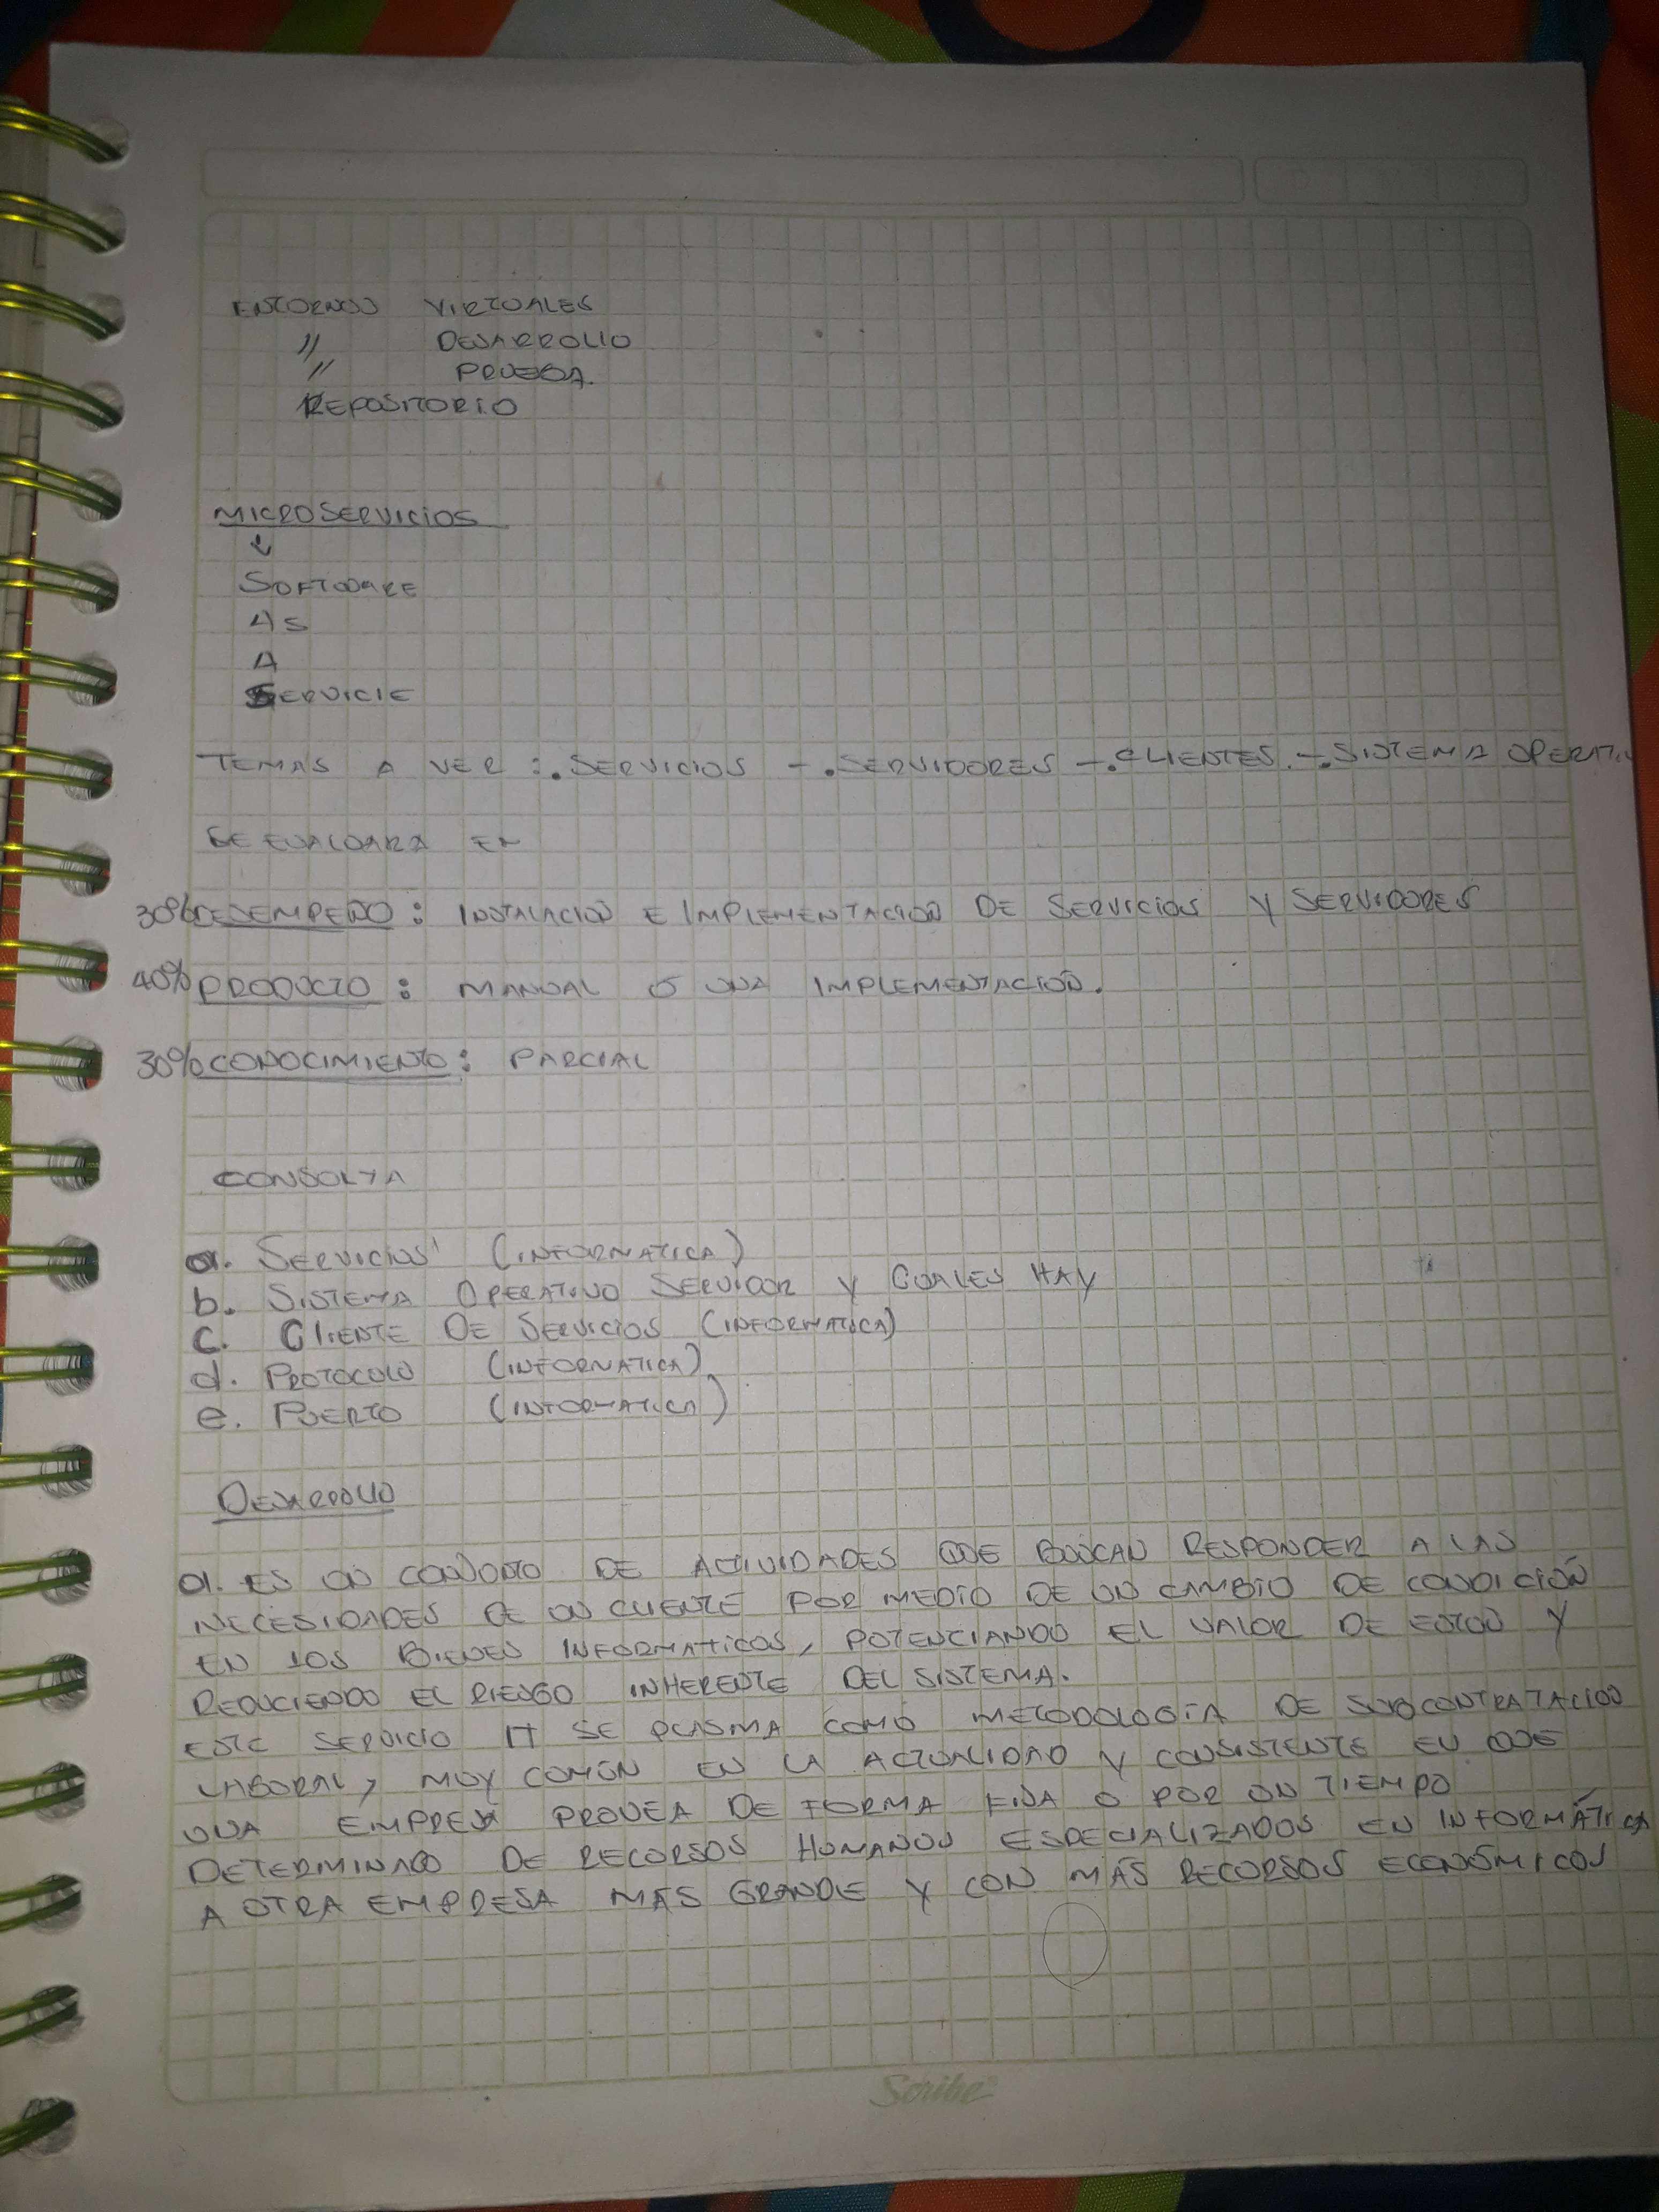 ENTORNOS VIRTUALES
" DESARROLLO
" PRUEBA.
REPOSITORIO
MICROSERVICIOS
SOFTWARE
AS
A
SERVICIE
TEMAS A VER : . SERVICIOS - . SERVIDORES - . CLIENTES . - . SISTEMA OPERATIV
SE EVALUARA EN
30% DESEMPEÑO : INSTALACION E IMPLEMENTACION DE SERVICIOS Y SERVIDORES
40% PRODUCTO : MANUAL O UNA IMPLEMENTACIÓN.
30% CONOCIMIENTO : PARCIAL
CONSULTA
a. SERVICIOS (INFORMATICA)
b. SISTEMA OPERATIVO SERVIDOR Y CUALES HAY
c. CLIENTE DE SERVICIOS (INFORMATICA)
d. PROTOCOLO (INFORMATICA)
e. PUERTO (INFORMATICA)
DESARROLLO
a. ES UN CONJUNTO DE ACTIVIDADES QUE BUSCAN RESPONDER A LAS
NECESIDADES DE UN CLIENTE POR MEDIO DE UN CAMBIO DE CONDICIÓN
EN LOS BIENES INFORMATICOS, POTENCIANDO EL VALOR DE ESTOS Y
REDUCIENDO EL RIESGO INHERENTE DEL SISTEMA.
ESTE SERVICIO IT SE PLASMA COMO METODOLOGÍA DE SUBCONTRATACION
LABORAL, MUY COMÚN EN LA ACTUALIDAD Y CONSISTENTE EN QUE
UNA EMPRESA PROVEA DE FORMA FIJA O POR UN TIEMPO
DETERMINADO DE RECURSOS HUMANOS ESPECIALIZADOS EN INFORMÁTICA
A OTRA EMPRESA MÁS GRANDE Y CON MÁS RECURSOS ECONÓMICOS
Scribe